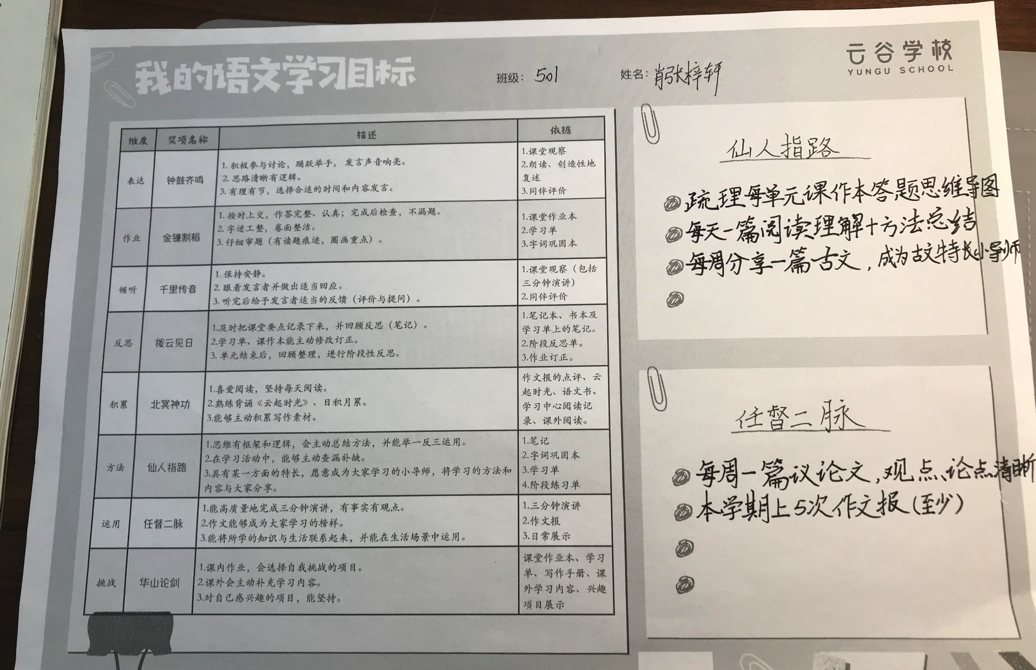 我的语文学习目标
班级：501
姓名：肖张梓轩
云谷学校
YUNGU SCHOOL
维度 奖项名称 描述 依据
表达 钟鼓齐鸣
1.积极参与讨论，踊跃举手，发言声音响亮。
2.思路清晰有逻辑。
3.有理有节，选择合适的时间和内容发言。
1.课堂观察
2.朗读、创造性地
复述
3.同伴评价
作业 金镰割稻
1.按时上交，作答完整、认真；完成后检查，不漏题。
2.字迹工整，卷面整洁。
3.仔细审题（有读题痕迹，圈画重点）。
1.课堂作业本
2.学习单
3.字词巩固本
倾听 千里传音
1.保持安静。
2.跟着发言者并做出适当回应。
3.听完后给予发言者适当的反馈（评价与提问）。
1.课堂观察（包括
三分钟演讲）
2.同伴评价
反思 拨云见日
1.及时把课堂要点记录下来，并回顾反思（笔记）。
2.学习单、课作本能主动修改订正。
3.单元结束后，回顾整理，进行阶段性反思。
1.笔记本、书本及
学习单上的笔记。
2.阶段反思单。
3.作业订正。
积累 北冥神功
1.喜爱阅读，坚持每天阅读。
2.熟练背诵《云起时光》、日积月累。
3.能够主动积累写作素材。
作文报的点评、云
起时光、语文书、
学习中心阅读记
录、课外阅读。
方法 仙人指路
1.思维有框架和逻辑，会主动总结方法，并能举一反三运用。
2.在学习活动中，能够主动查漏补缺。
3.具有某一方面的特长，愿意成为大家学习的小导师，将学习的方法和
内容与大家分享。
1.笔记
2.字词巩固本
3.学习单
4.阶段练习单
运用 任督二脉
1.能高质量地完成三分钟演讲，有事实有观点。
2.作文能够成为大家学习的榜样。
3.能将所学的知识与生活联系起来，并能在生活场景中运用。
1.三分钟演讲
2.作文报
3.日常展示
挑战 华山论剑
1.课内作业，会选择自我挑战的项目。
2.课外会主动补充学习内容。
3.对自己感兴趣的项目，能坚持。
课堂作业本、学习
单、写作手册、课
外学习内容、兴趣
项目展示
仙人指路
疏理每单元课作本答题思维导图
每天一篇阅读理解+方法总结
每周分享一篇古文，成为古文特长小导师
任督二脉
每周一篇议论文，观点、论点清晰
本学期上5次作文报（至少）